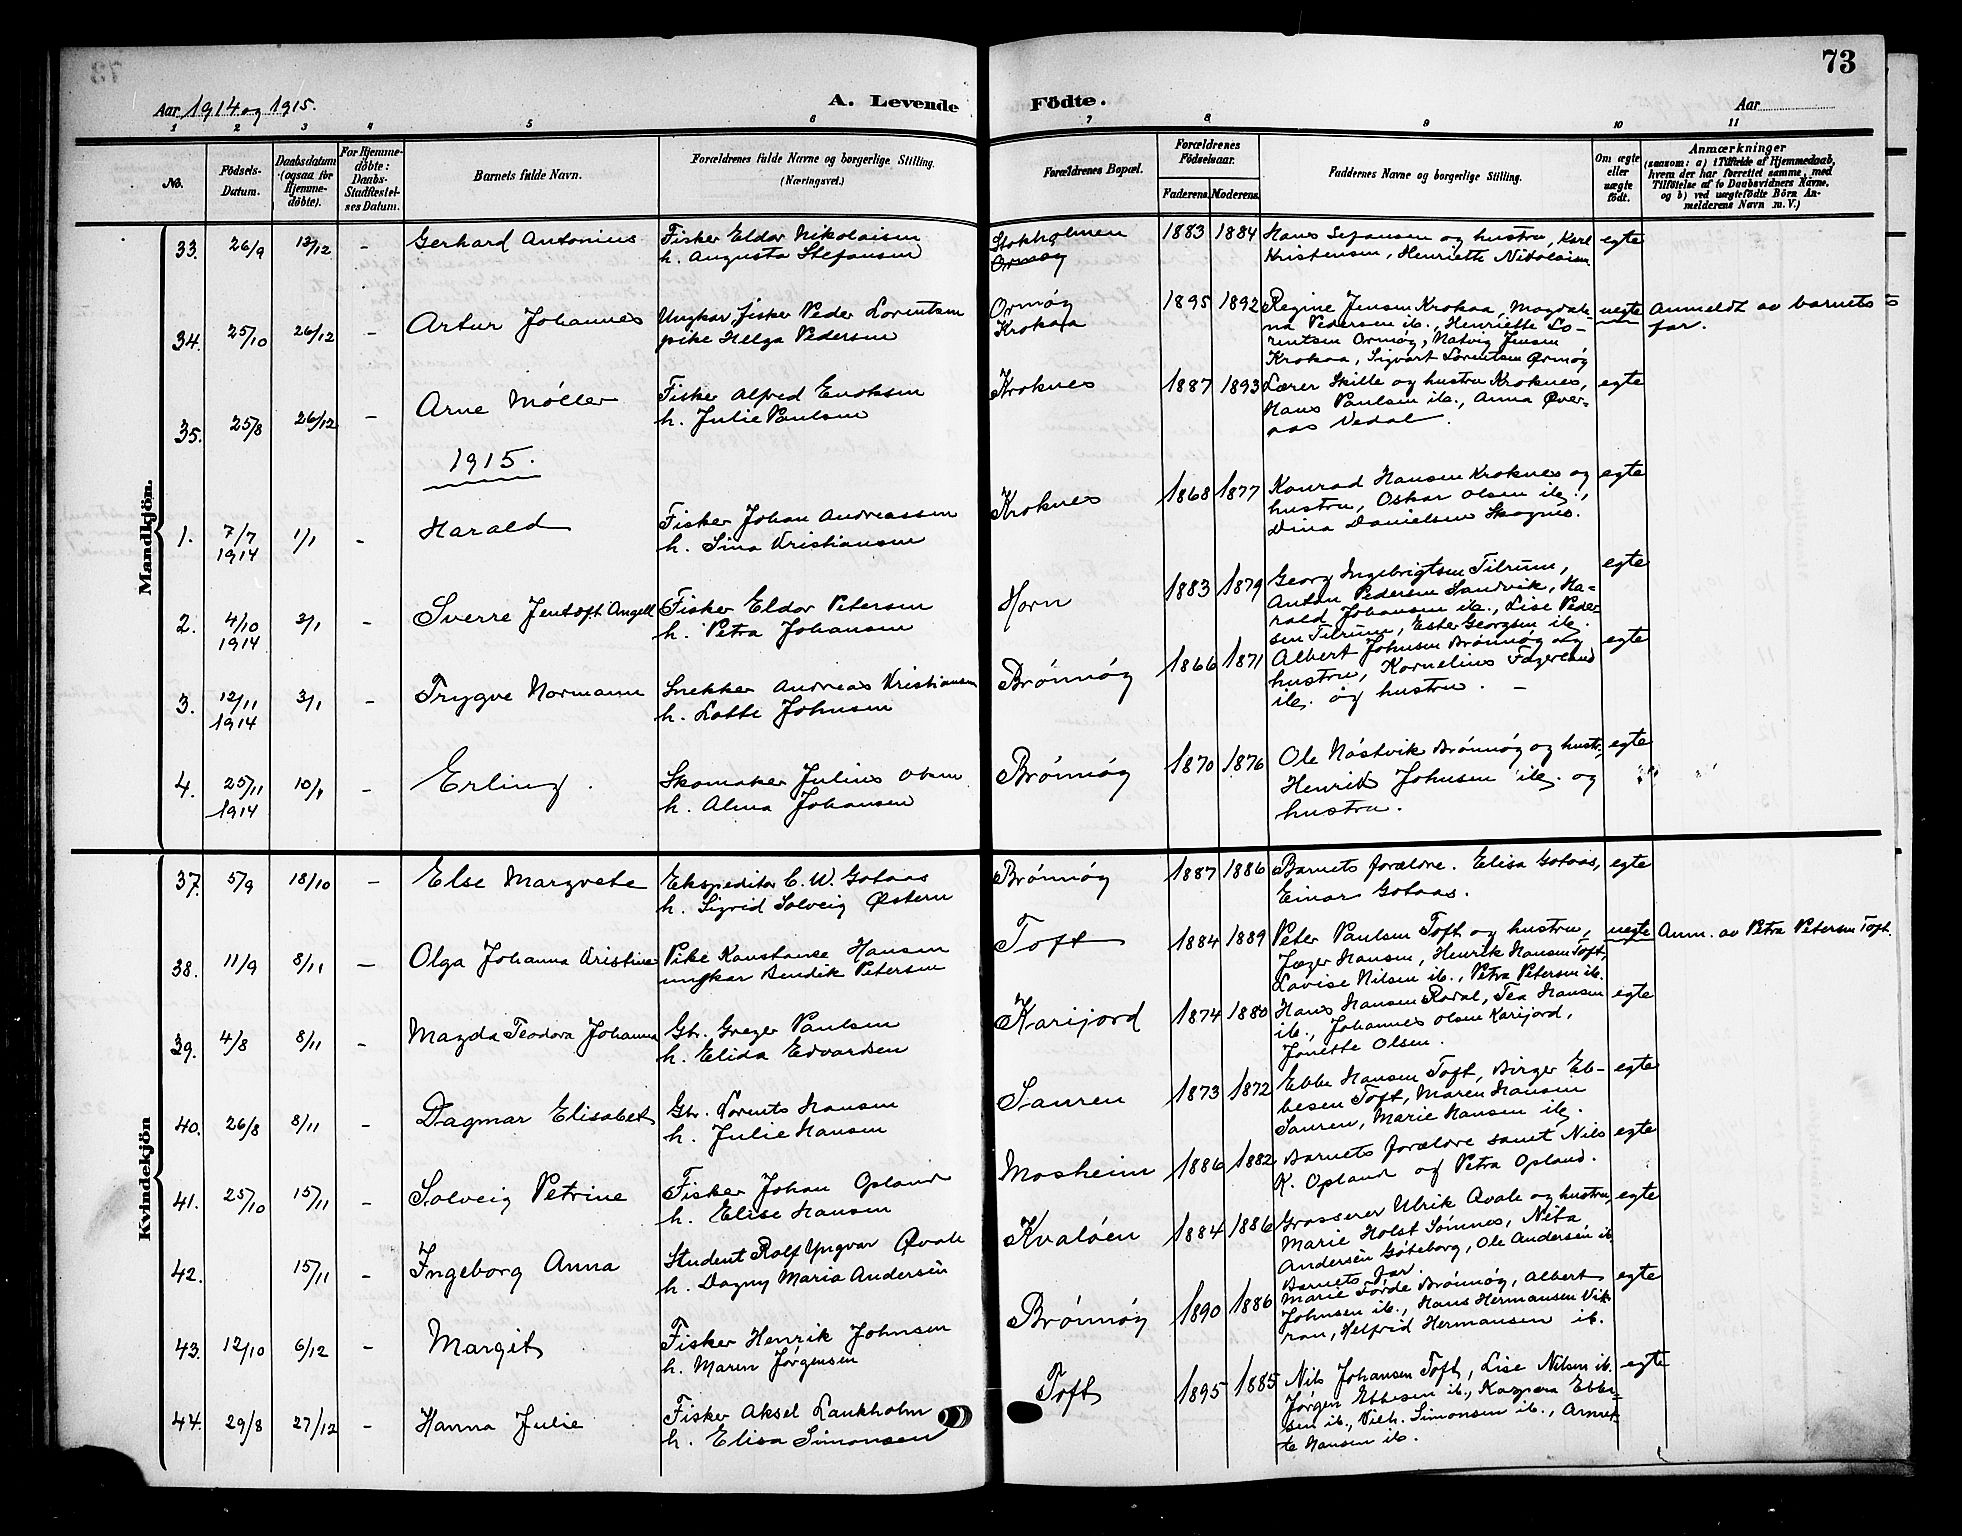 73
Aar 1914 og 1915.
A. Levende Födte.
Aar
1 2 3 4 5 6 7 8 9 10 11
No.
Födsels-Datum.
Daabsdatum (ogsaa for Hjemmedöbte).
For Hjemmedöbte: Daabs-Stadfæstelses Datum.
Barnets fulde Navn.
Forældrenes fulde Navne og borgerlige Stilling. (Næringsvei.)
Forældrenes Bopæl.
Forældrenes Födselsaar.
Faderens. Moderens.
Faddernes Navne og borgerlige Stilling.
Om ægte eller uægte födt.
Anmærkninger
(saasom: a) i Tilfælde af Hjemmedaab, hvem der har forrettet samme, med Tilföielse af to Daabsvidners Navne, og b) ved uægtefödte Börn Anmelderens Navn m. V.)
Mandkjön.
33. 26/9 13/12 - Gerhard Antonius Fisker Eldor Nikolaisen Stokholmen 1883 1884 Hans Sefansen og hustru, Karl egte
h. Augusta Stefansen Ormøy Kristensen, Henriette Nikolaisen
34. 25/10 26/12 - Artur Johannes Ungkar fisker Peder Lorentsen Ormøy 1895 1892 Regine Jensen Krokaa, Magdale- uegte Anmeldt av barnets
pike Helga Pedersen Krokaa na Pedersen ib., Henriette Lo- far.
rentsen Ormøy, Natvig Jensen
Krokaa, Sigvart Lorentsen Ormøy
35. 25/8 26/12 - Arne Møller Fisker Alfred Enoksen Kroknes 1887 1893 Lærer Skille og hustru Kroknes, egte
h. Julie Paulsen Hans Paulsen ib., Anna Øver-
aas Vedal.
1915.
1. 7/7 1914 1/1 - Harald Fisker Johan Andreassen Kroknes 1868 1877 Konrad Hansen Kroknes og egte
h. Sina Kristiansen hustru, Oskar Olsen ib.,
Dina Danielsen Skognes.
2. 4/10 1914 3/1 - Sverre Jentoft Angell Fisker Eldor Petersen Horn 1883 1879 Georg Ingebrigtsen Tilrum, egte
h. Petra Johansen Anton Pedersen Sandvik, Ha-
rald Johansen ib., Lise Peder
sen Tilrum, Ester Georgsen ib.
3. 12/11 1914 3/1 - Trygve Normann Snekker Andreas Kristiansen Brønnøy 1866 1871 Albert Johnsen Brønnøy og egte
h. Lotte Johnsen hustru, Kornelius Fagerland
ib. og hustru. -
4. 25/11 1914 10/1 - Erling. Skomaker Julius Olsen Brønnøy 1870 1876 Ole Nøstvik Brønnøy og hustr. egte
h. Alma Johansen Henrik Johnsen ib. og
hustru.
Kvindekjön
37. 5/9 18/10 - Else Margrete Ekspeditør C. W. Gotaas Brønnøy 1887 1886 Barnets forældre. Elisa Gotaas, egte
h. Sigrid Solveig Østern Einar Gotaas.
38. 11/9 8/11 - Olga Johanna Kristine Pike Konstanse Hansen Toft 1884 1889 Peter Paulsen Toft og hustru, uegte Anm. av Petra Petersen Toft.
ungkar Bendik Petersen Jæger Hansen, Henrik Hansen Toft,
Lovise Nilsen ib., Petra Petersen ib.
39. 4/8 8/11 - Magda Teodora Johanna Gbr. Greger Paulsen Karijord 1874 1880 Hans Hansen Rodal, Tea Hansen egte
h. Elida Edvardsen ib., Johannes Olsen Karijord,
Jonette Olsen.
40. 26/8 8/11 - Dagmar Elisabet Gbr. Lorents Hansen Sauren 1873 1872 Ebbe Hansen Toft, Birger Eb- egte
h. Julie Hansen besen Toft, Maren Hansen
Sauren, Marie Hansen ib.
41. 25/10 15/11 - Solveig Petrine Fisker Johan Opland Mosheim 1886 1882 Barnets forældre samt Nils egte
h. Elise Hansen K. Opland og Petra Opland.
42. 15/11 - Ingeborg Anna Student Rolf Yngvar Qvale Kvaløen 1884 1886 Grosserer Ulrik Qvale og hustru, egte
h. Dagny Maria Andersen Marie Holst Sømnes, Nita
Andersèn Gøteborg, Ole Andersèn ib
Barnets far.
43. 12/10 6/12 - Margit Fisker Henrik Johnsen Brønnøy 1890 1886 Marie Førde Brønnøy, Albert egte
h. Maren Jørgensen Johnsen ib., Hans Hermansen Vik-
ran, Helfrid Hermansen ib.
44. 29/8 27/12 - Hanna Julie Fisker Aksel Laukholm Toft 1895 1885 Nils Johansen Toft, Lise Nilsen ib. egte
h. Elisa Simonsen Jørgen Ebbesen ib., Kaspara Ebbe-
sen ib., Vilh. Simonsen ib., Annet-
te Hansen ib.